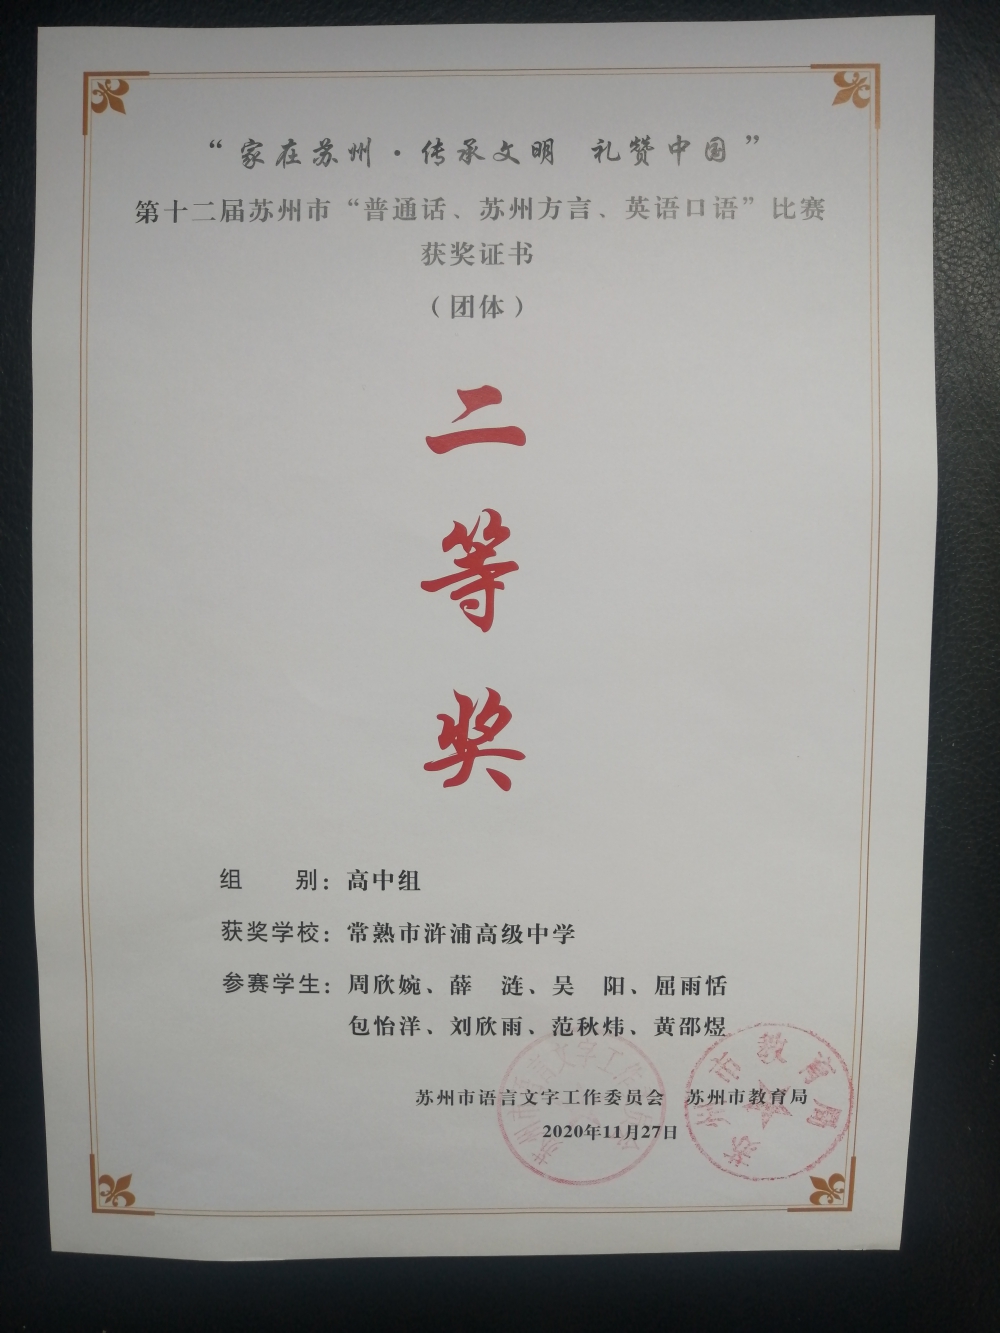 “家在苏州·传承文明 礼赞中国”
第十二届苏州市“普通话、苏州方言、英语口语”比赛
获奖证书
（团体）
二
等
奖
组 别：高中组
获奖学校：常熟市浒浦高级中学
参赛学生：周欣婉、薛 涟、吴 阳、屈雨恬
包怡洋、刘欣雨、范秋炜、黄邵煜
苏州市语言文字工作委员会 苏州市教育局
2020年11月27日
苏州市语言文字工作委员会
苏州市教育局